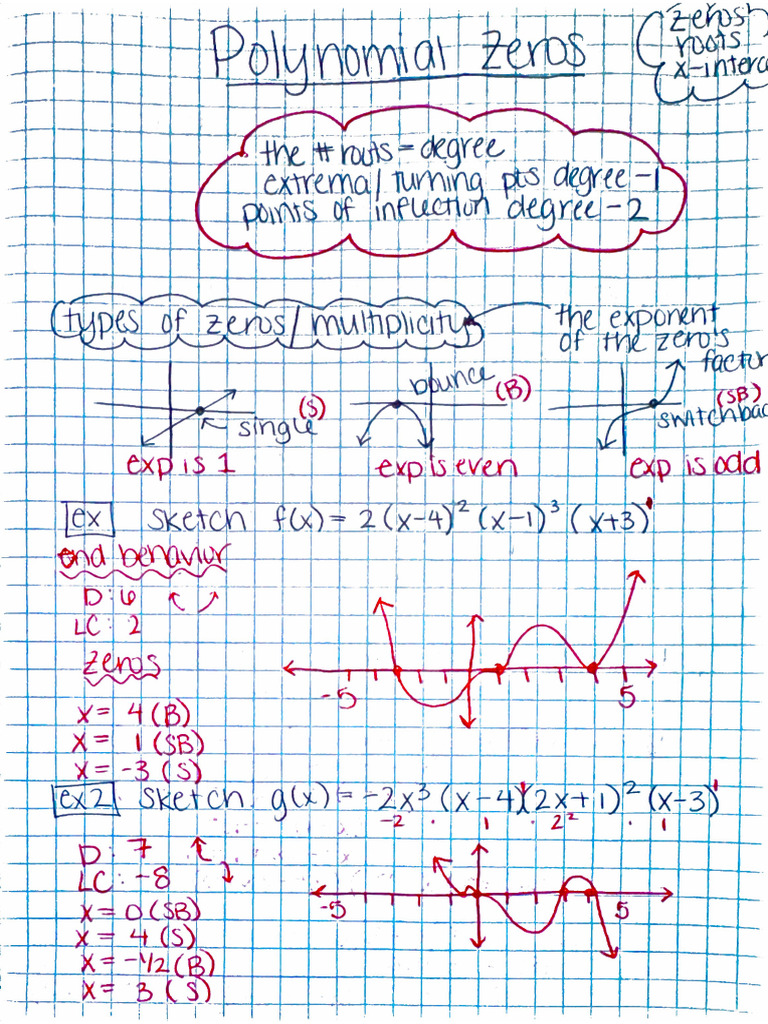 Polynomial Zeros
zeros
roots
x-interc
the # roots = degree
extrema/turning pts degree -1
points of inflection degree -2
types of zeros/multiplicity
the exponent
of the zero's
factor
single (S)
bounce (B)
(SB)
switchbac
exp is 1
exp is even
exp is odd
ex sketch f(x) = 2(x-4)²(x-1)³(x+3)¹
end behavior
D: 6
LC: 2
zeros
-5 5
x = 4 (B)
x = 1 (SB)
x = -3 (S)
ex2 sketch g(x) = -2x³(x-4)¹(2x+1)²(x-3)¹
-2 · 1 2² · 1
D: 7
LC: -8
-5 5
x = 0 (SB)
x = 4 (S)
x = -1/2 (B)
x = 3 (S)